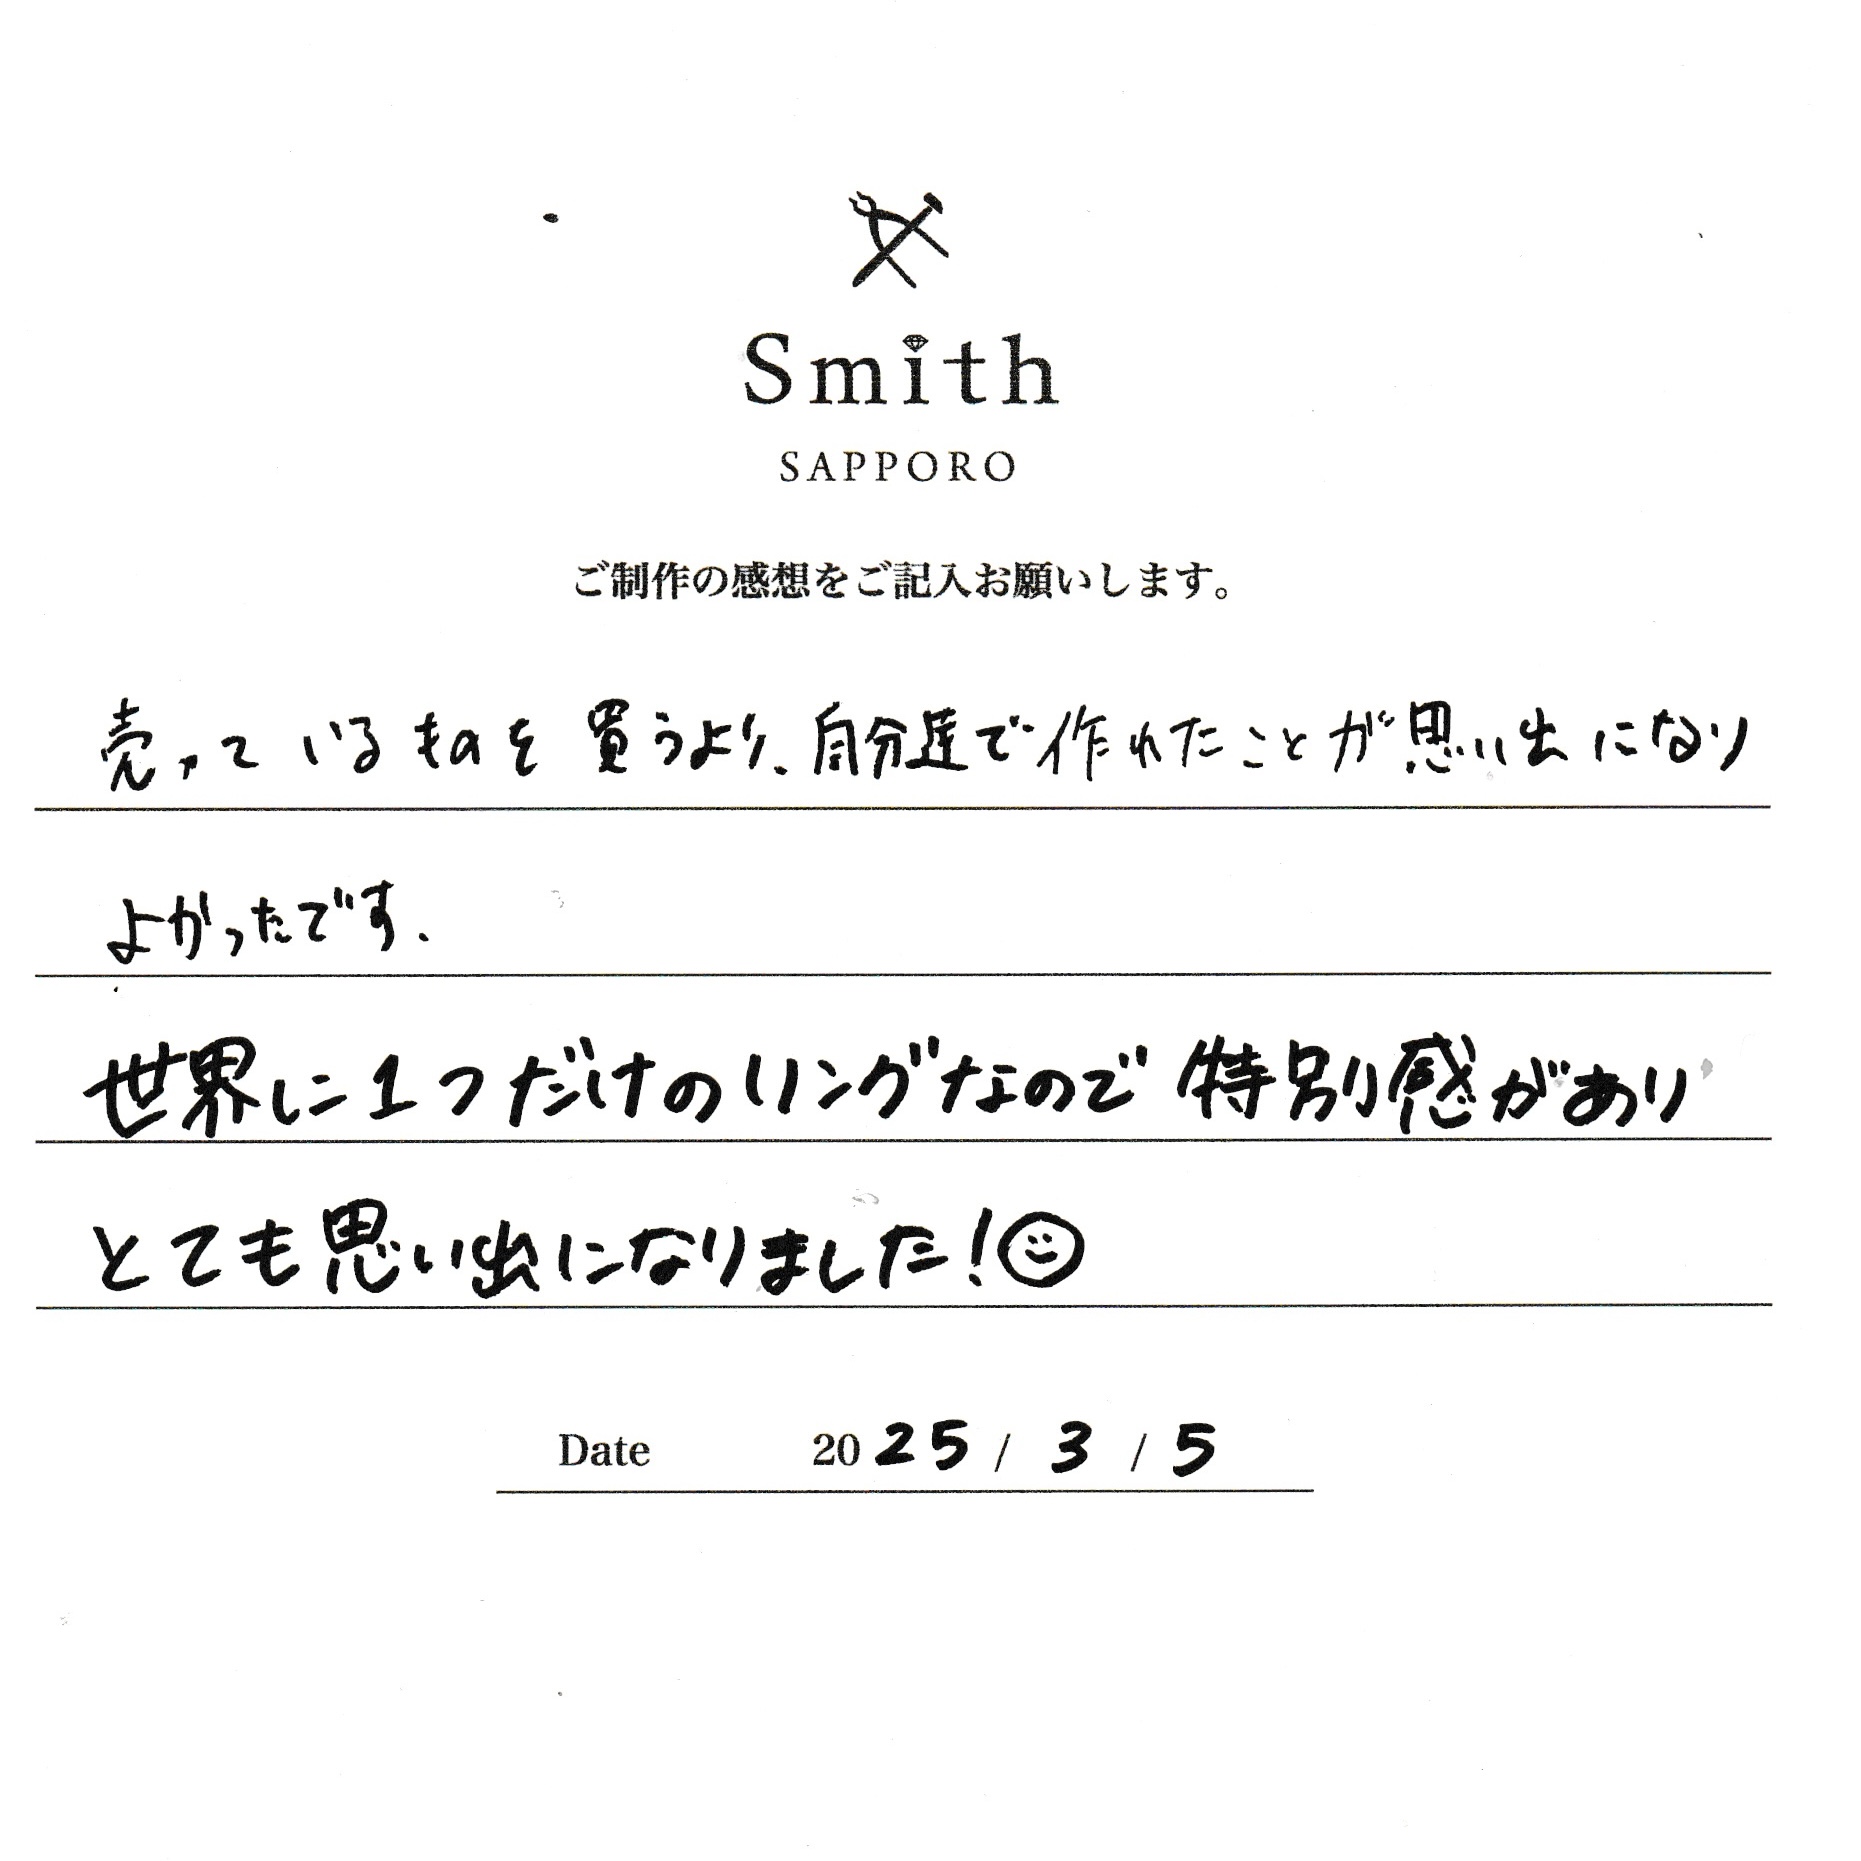 Smith
SAPPORO
ご制作の感想をご記入お願いします。
売っているものを買うより、自分達で作れたことが思い出になり
よかったです.
世界に1つだけのリングなので特別感があり
とても思い出になりました!
Date 2025/3/5